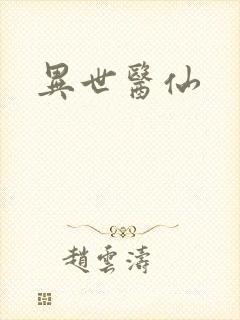 異世醫仙
趙雲濤